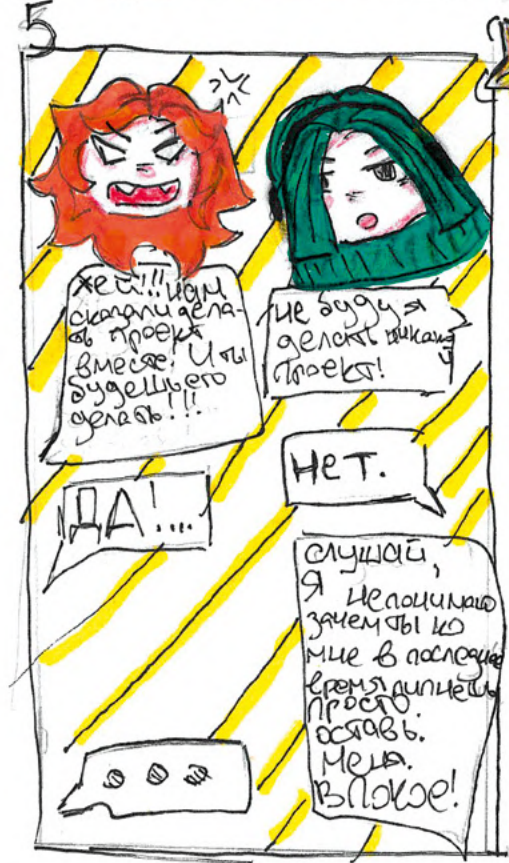 5
хей!!! нам
сказали дела-
ть проект
вместе! И ты
будешь его
делать!!!
не буду я
делать никакой
проект!
Нет.
ДА!...
слушай,
я непонимаю
зачем ты ко
мне в последнее
время липнешь
просто
оставь.
меня.
в покое!